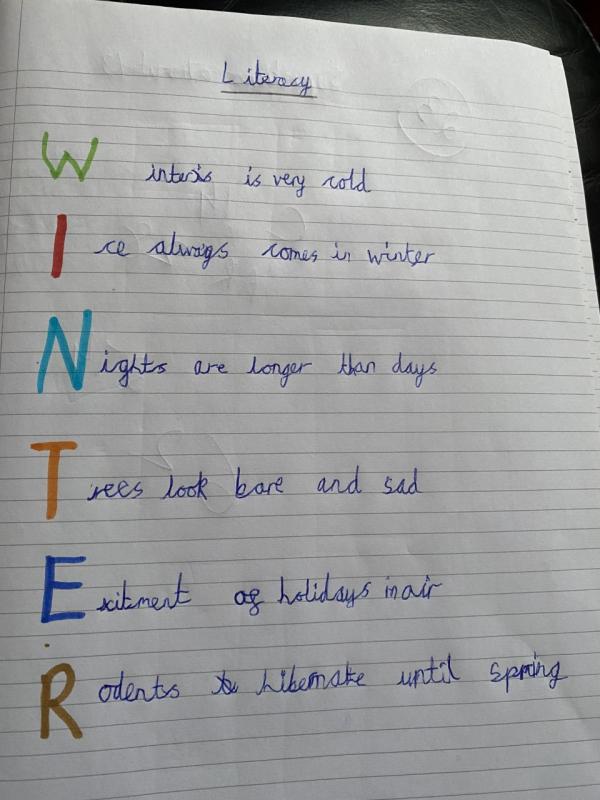 Literacy
Winteris is very cold
Ice always comes in winter
Nights are longer than days
Trees look bare and sad
Exitment of holidays in air
Rodents to hibernate until spring